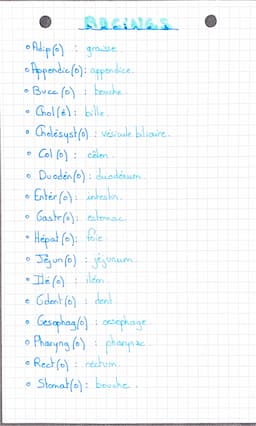 RACINES
Adip(o) : graisse
Appendic(o) : appendice.
Bucc(o) : bouche.
Chol(é) : bille.
Cholésyst(o) : vésicule biliaire.
Col(o) : côlon.
Duodén(o) : duodénum.
Entér(o) : intestin.
Gastr(o) : estomac.
Hépat(o) : foie.
Jéjun(o) : jéjunum.
Ilé(o) : iléon.
Odent(o) : dent
Oesophag(o) : oesophage
Pharyng(o) : pharynx
Rect(o) : rectum.
Stomat(o) : bouche.